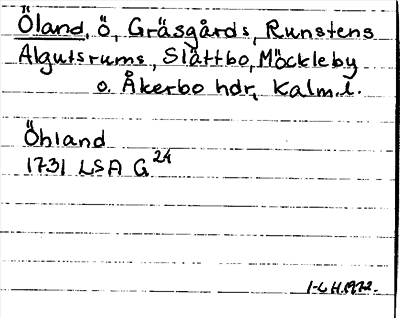 Öland, ö, Gräsgårds, Runstens
Algutsrums, Slättbo, Möckleby
o. Åkerbo hdr, Kalm.l.
Öhland
1731 LSA G24
1972